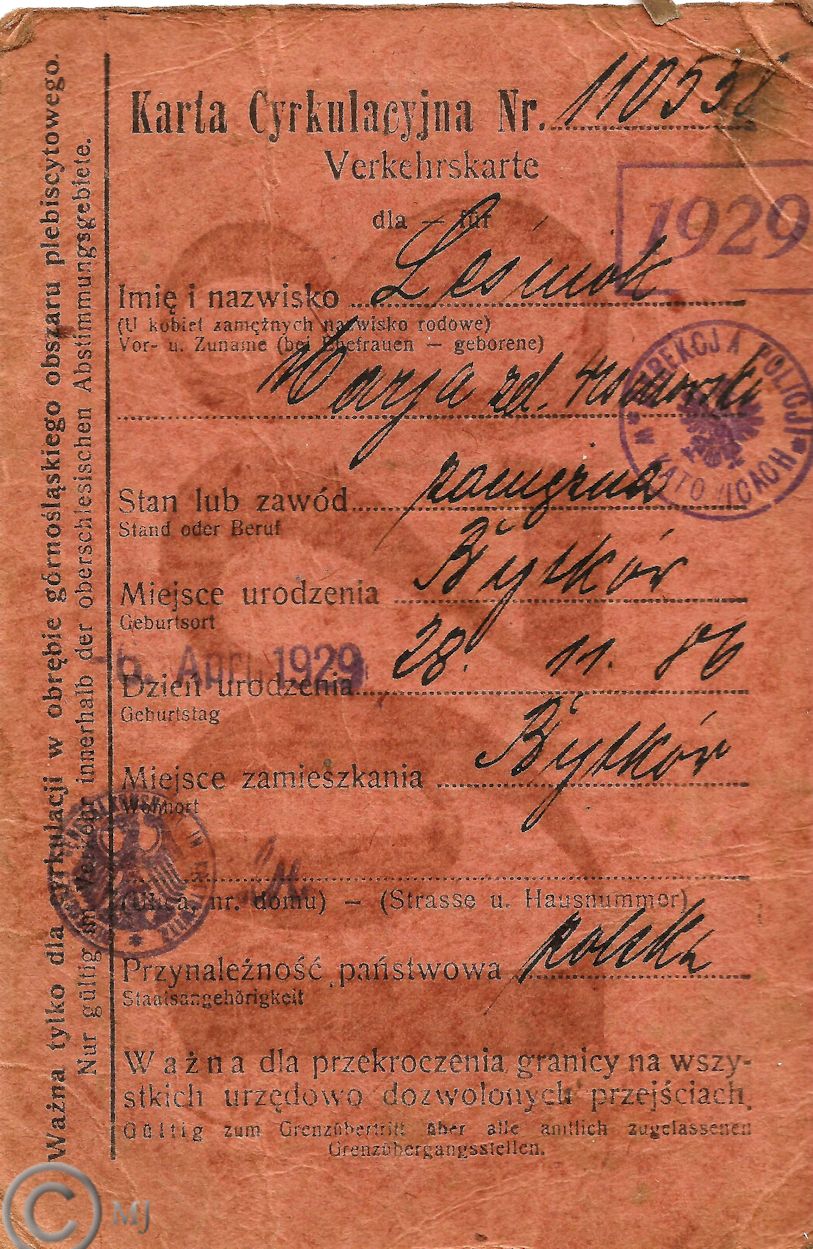 Karta Cyrkulacyjna Nr. 110538
Verkehrskarte
1929
dla – für
Imię i nazwisko Leśniok
(U kobiet zamężnych nazwisko rodowe)
Vor- u. Zuname (bei Ehefrauen – geborene)
Marja
DYREKCJA POLICJI * W KATOWICACH *
Stan lub zawód
Stand oder Beruf
Miejsce urodzenia Bytków
Geburtsort
-6. April 1929
Dzień urodzenia 28. 11. 86
Geburtstag
Miejsce zamieszkania Bytków
Wohnort
(Ulica, nr. domu) – (Strasse u. Hausnummer)
Przynależność państwowa polska
Staatsangehörigkeit
Ważna dla przekroczenia granicy na wszy-
stkich urzędowo dozwolonych przejściach.
Gültig zum Grenzübertritt über alle amtlich zugelassenen
Grenzübergangsstellen.
Ważna tylko dla cyrkulacji w obrębie górnośląskiego obszaru plebiscytowego.
Nur gültig im Verkehr innerhalb der oberschlesischen Abstimmungsgebiete.
© MJ